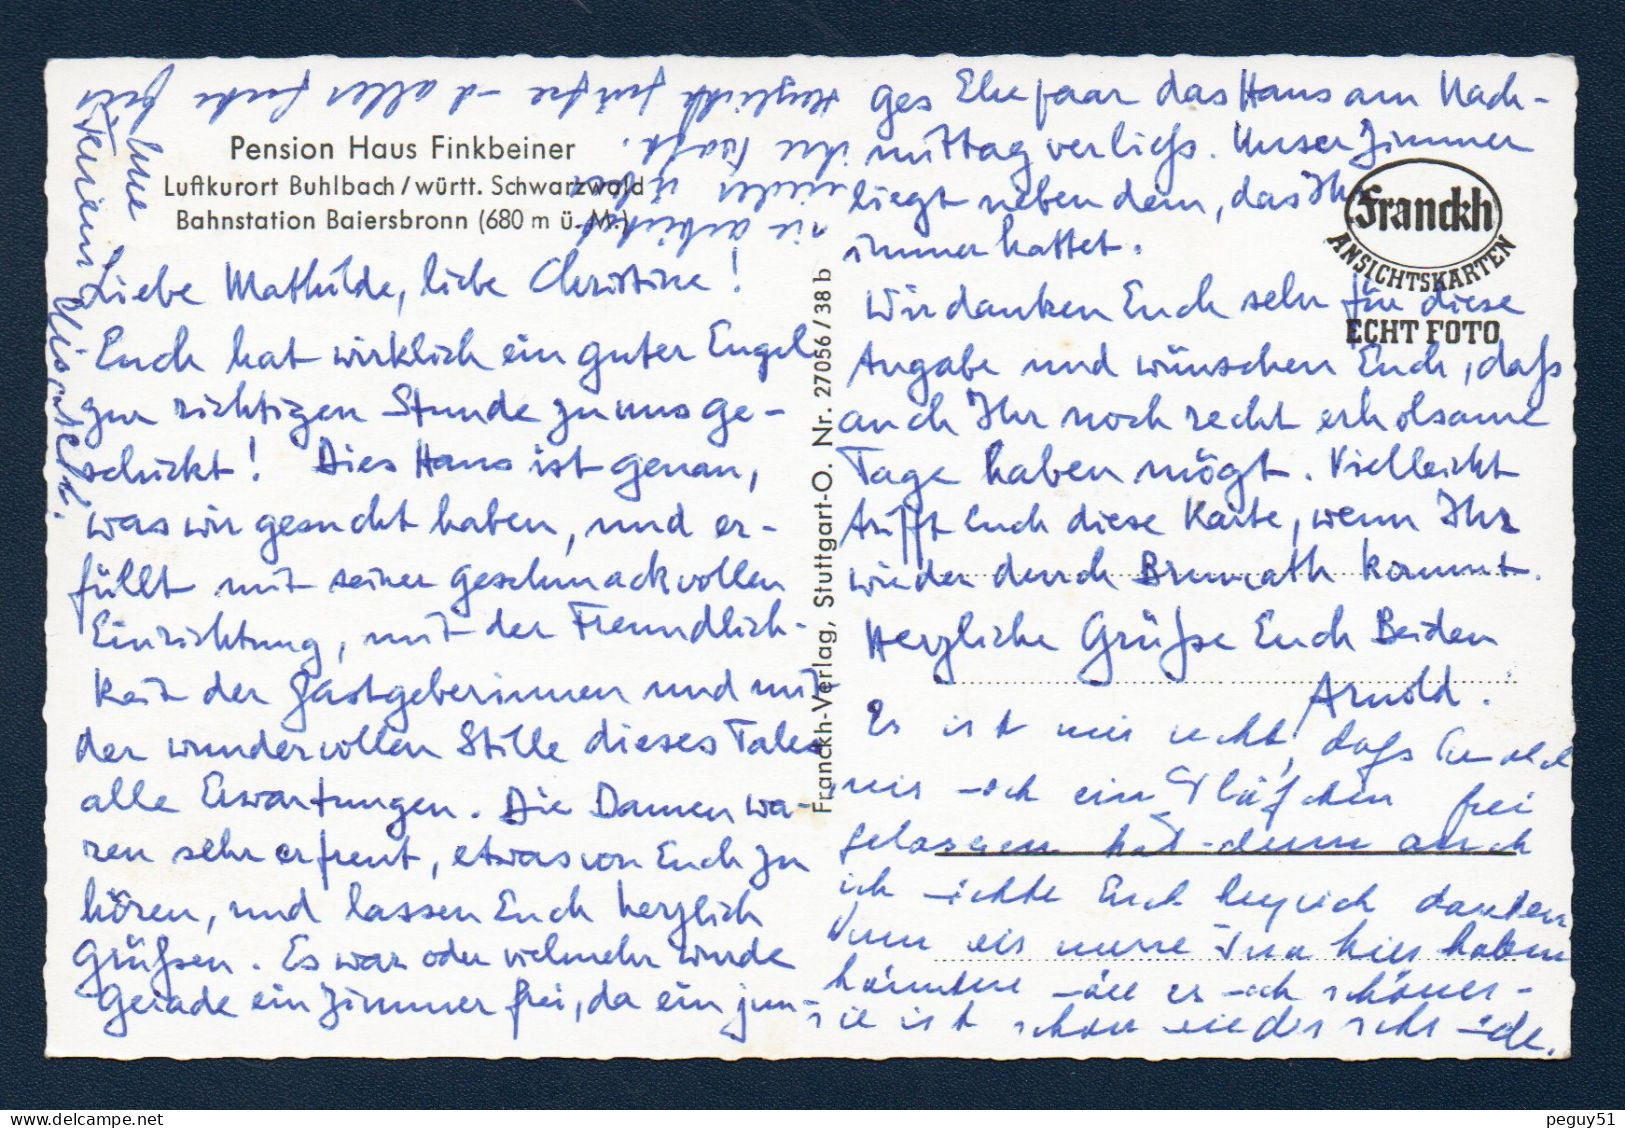 Pension Haus Finkbeiner
Luftkurort Buhlbach/württ. Schwarzwald
Bahnstation Baiersbronn (680 m ü. M.)
Liebe Mathilde, liebe Christine!
Euch hat wirklich ein guter Engel
zur richtigen Stunde zu uns ge-
schickt! Dies Haus ist genau,
was wir gesucht haben, und er-
füllt mit seiner geschmackvollen
Einrichtung, mit der Freundlich-
keit der Gastgeberinnen und mit
der wundervollen Stille dieses Tales
alle Erwartungen. Die Damen wa-
ren sehr erfreut, etwas von Euch zu
hören, und lassen Euch herzlich
grüßen. Es war oder vielmehr wurde
gerade ein Zimmer frei, da ein jun-
ges Ehepaar das Haus am Nach-
mittag verließ. Unser Zimmer
liegt neben dem, das Ihr
immer hattet.
Wir danken Euch sehr für diese
Angabe und wünschen Euch, daß
auch Ihr noch recht erholsame
Tage haben mögt. Vielleicht
trifft Euch diese Karte, wenn Ihr
wieder durch Brumath kommt.
Herzliche Grüße Euch Beiden
Arnold.
Es ist mir recht, daß Arnold
mir noch ein Plätzchen frei
gelassen hat - denn auch
ich möchte Euch herzlich danken
Wenn wir unsere Ina hier haben
könnten wäre es noch schöner -
sie ist schon wieder sehr müde.
Herzlichste Grüße und alles Gute
Eure
Franckh-Verlag, Stuttgart-O. Nr. 27056/38 b
Franckh
ANSICHTSKARTEN
ECHT FOTO
peguy51